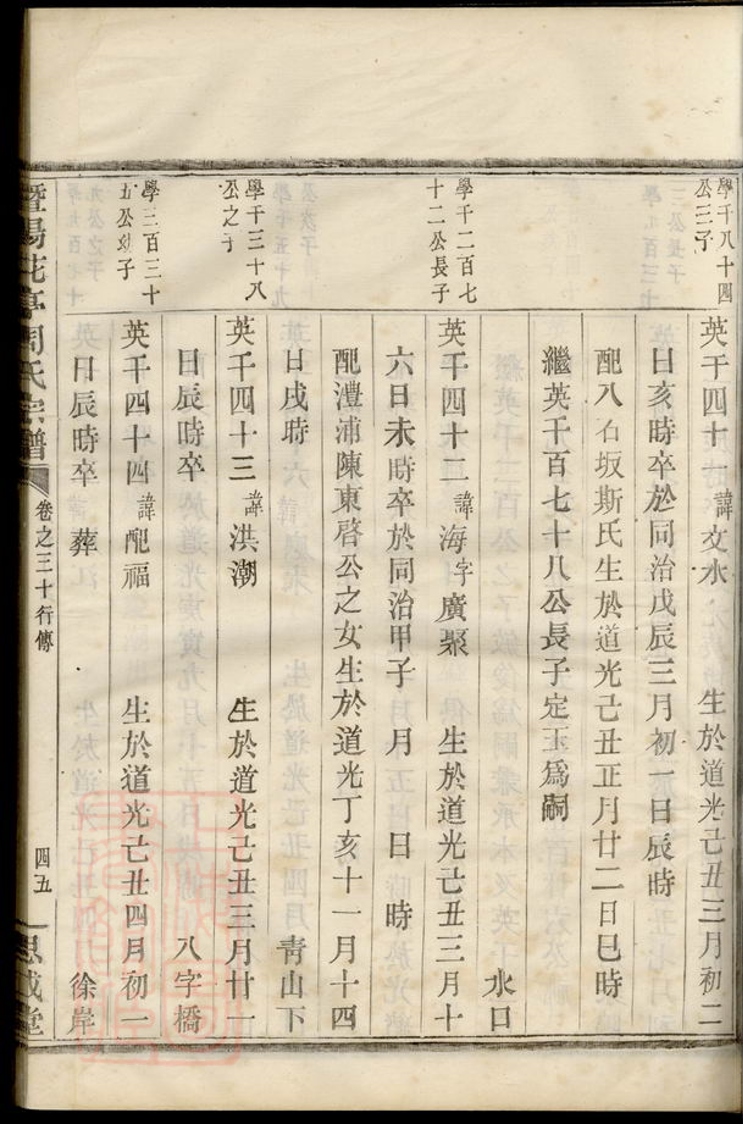 學千八十四
公三子
英千四十一諱文水 生於道光己丑三月初二
日亥時卒於同治戊辰三月初一日辰時
配八石坂斯氏生於道光己丑正月廿二日巳時
繼英千百七十八公長子定玉為嗣
水口
學千二百七
十二公長子
英千四十二諱海字廣聚 生於道光己丑三月十
六日未時卒於同治甲子 月 日 時
配澧浦陳東啓公之女生於道光丁亥十一月十四
日戌時 青山下
學千三十八
公之子
英千四十三諱洪潮 生於道光己丑三月廿一
日辰時卒 八字橋
學三百三十
五公幼子
英千四十四諱配福 生於道光己丑四月初一
日辰時卒 葬 徐岸
暨陽花亭周氏宗譜 卷之三十行傳 四五 思成堂